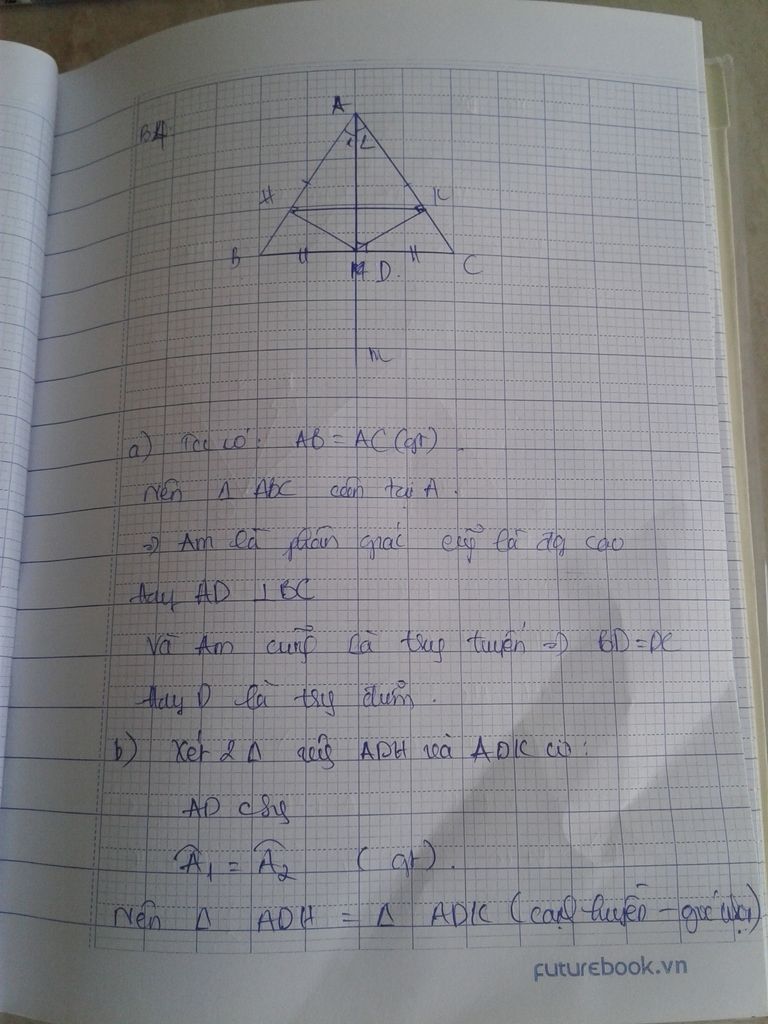 B4
A
1 2
H
K
B
D
C
m
a) Ta có: AB = AC (gt).
nên Δ ABC cân tại A.
=> Am là phân giác cũg là đg cao
hay AD ⊥ BC
Và Am cũng là trug tuyến => BD = DC
hay D là trug điểm.
b) Xét 2 Δ vuôg ADH và ADK có:
AD chug
Â1 = Â2 (gt).
nên Δ ADH = Δ ADK (cạnh huyền - góc nhọn)
futurebook.vn